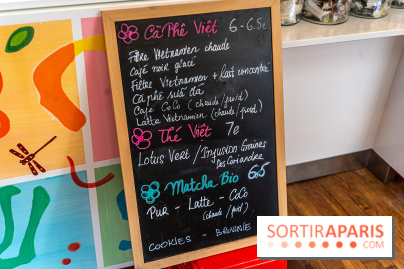 Cà Phê Việt 6 - 6.5€
Filtre Vietnamien chaude
Café noir glacé
Filtre Vietnamien + lait concentré
Cà phê sữa đá
Café CoCo (chaude/froid)
Latte Vietnamien (chaude/froid)
Thé Việt 7e
Lotus Vert / Infusion Graines
Des Coriandre
Matcha Bio 6.5
Pur - Latte - CoCo
(chaude / froid)
COOKIES - BROWNIE
SORTIRAPARIS
.COM